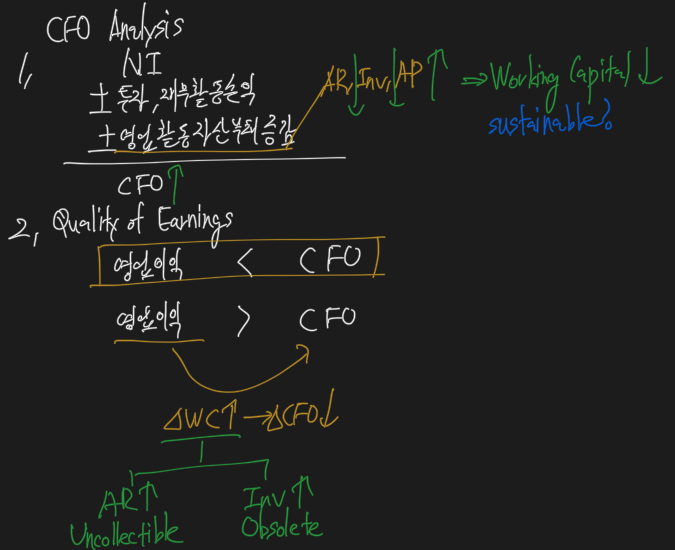 CFO Analysis
1, NI
± 투자, 재무활동손익
± 영업활동자산부채증감
CFO↑
AR↓, Inv↓, AP↑ ⇒ Working Capital↓
sustainable?
2, Quality of Earnings
영업이익 < CFO
영업이익 > CFO
△WC↑ → △CFO↓
AR↑ Inv↑
Uncollectible Obsolete